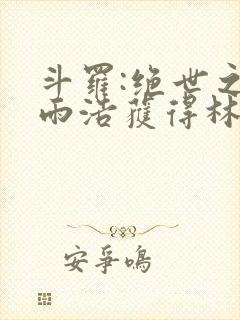 斗羅:绝世之
雨浩獲得林
安爭鳴